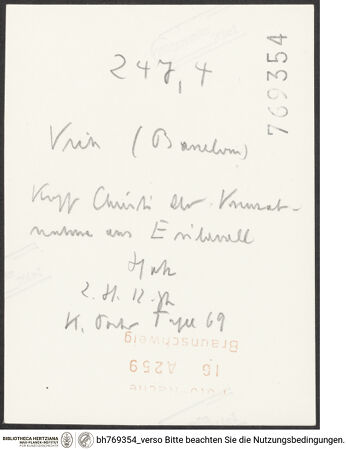 247,4
769354
Vich (Barcelona)
Kopf Christi der Kreuzab-
nahme aus Erillavall
Holz
2. H. 12. Jh
K. Porter Tafel 69
Braunschweig
16 A259
BIBLIOTHECA HERTZIANA
MAX-PLANCK-INSTITUT
FÜR KUNSTGESCHICHTE
bh769354_verso Bitte beachten Sie die Nutzungsbedingungen.